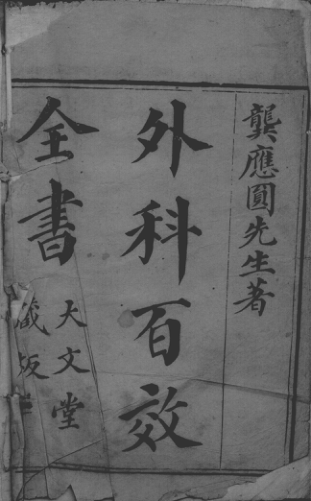 龔應圓先生著
外科百效
全書
大文堂
藏板